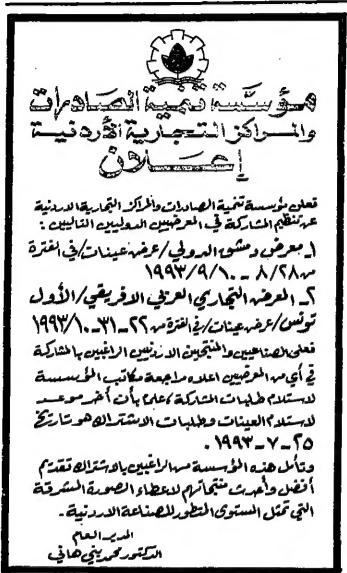 مؤسسة تنمية الصادرات
والمراكز التجارية الأردنية
إعلان
تعلن مؤسسة تنمية الصادرات والمراكز التجارية الاردنية
عن تنظيم المشاركة في المعرضين الدوليين التاليين :
١ـ معرض دمشق الدولي/عرض عينات/في الفترة
من ٨/٢٨ - ١٩٩٣/٩/١٠
٢ـ المعرض التجاري العربي الافريقي/الأول
تونس/عرض عينات/في الفترة من ٢٢-٣١-١٩٩٣/١٠
فعلى الصناعيين والمنتجين الاردنيين الراغبين بالمشاركة
في أي من المعرضين اعلاه مراجعة مكاتب المؤسسة
لاستلام طلبات المشاركة، علما بأن آخر موعد
لاستلام العينات وطلبات الاشتراك هو تاريخ
٢٥-٧-١٩٩٣.
وتأمل هذه المؤسسة من الراغبين بالاشتراك تقديم
أفضل وأحدث منتجاتهم لاعطاء الصورة المشرقة
التي تمثل المستوى المتطور للصناعة الاردنية.
المدير العام
الدكتور محمد بني هاني